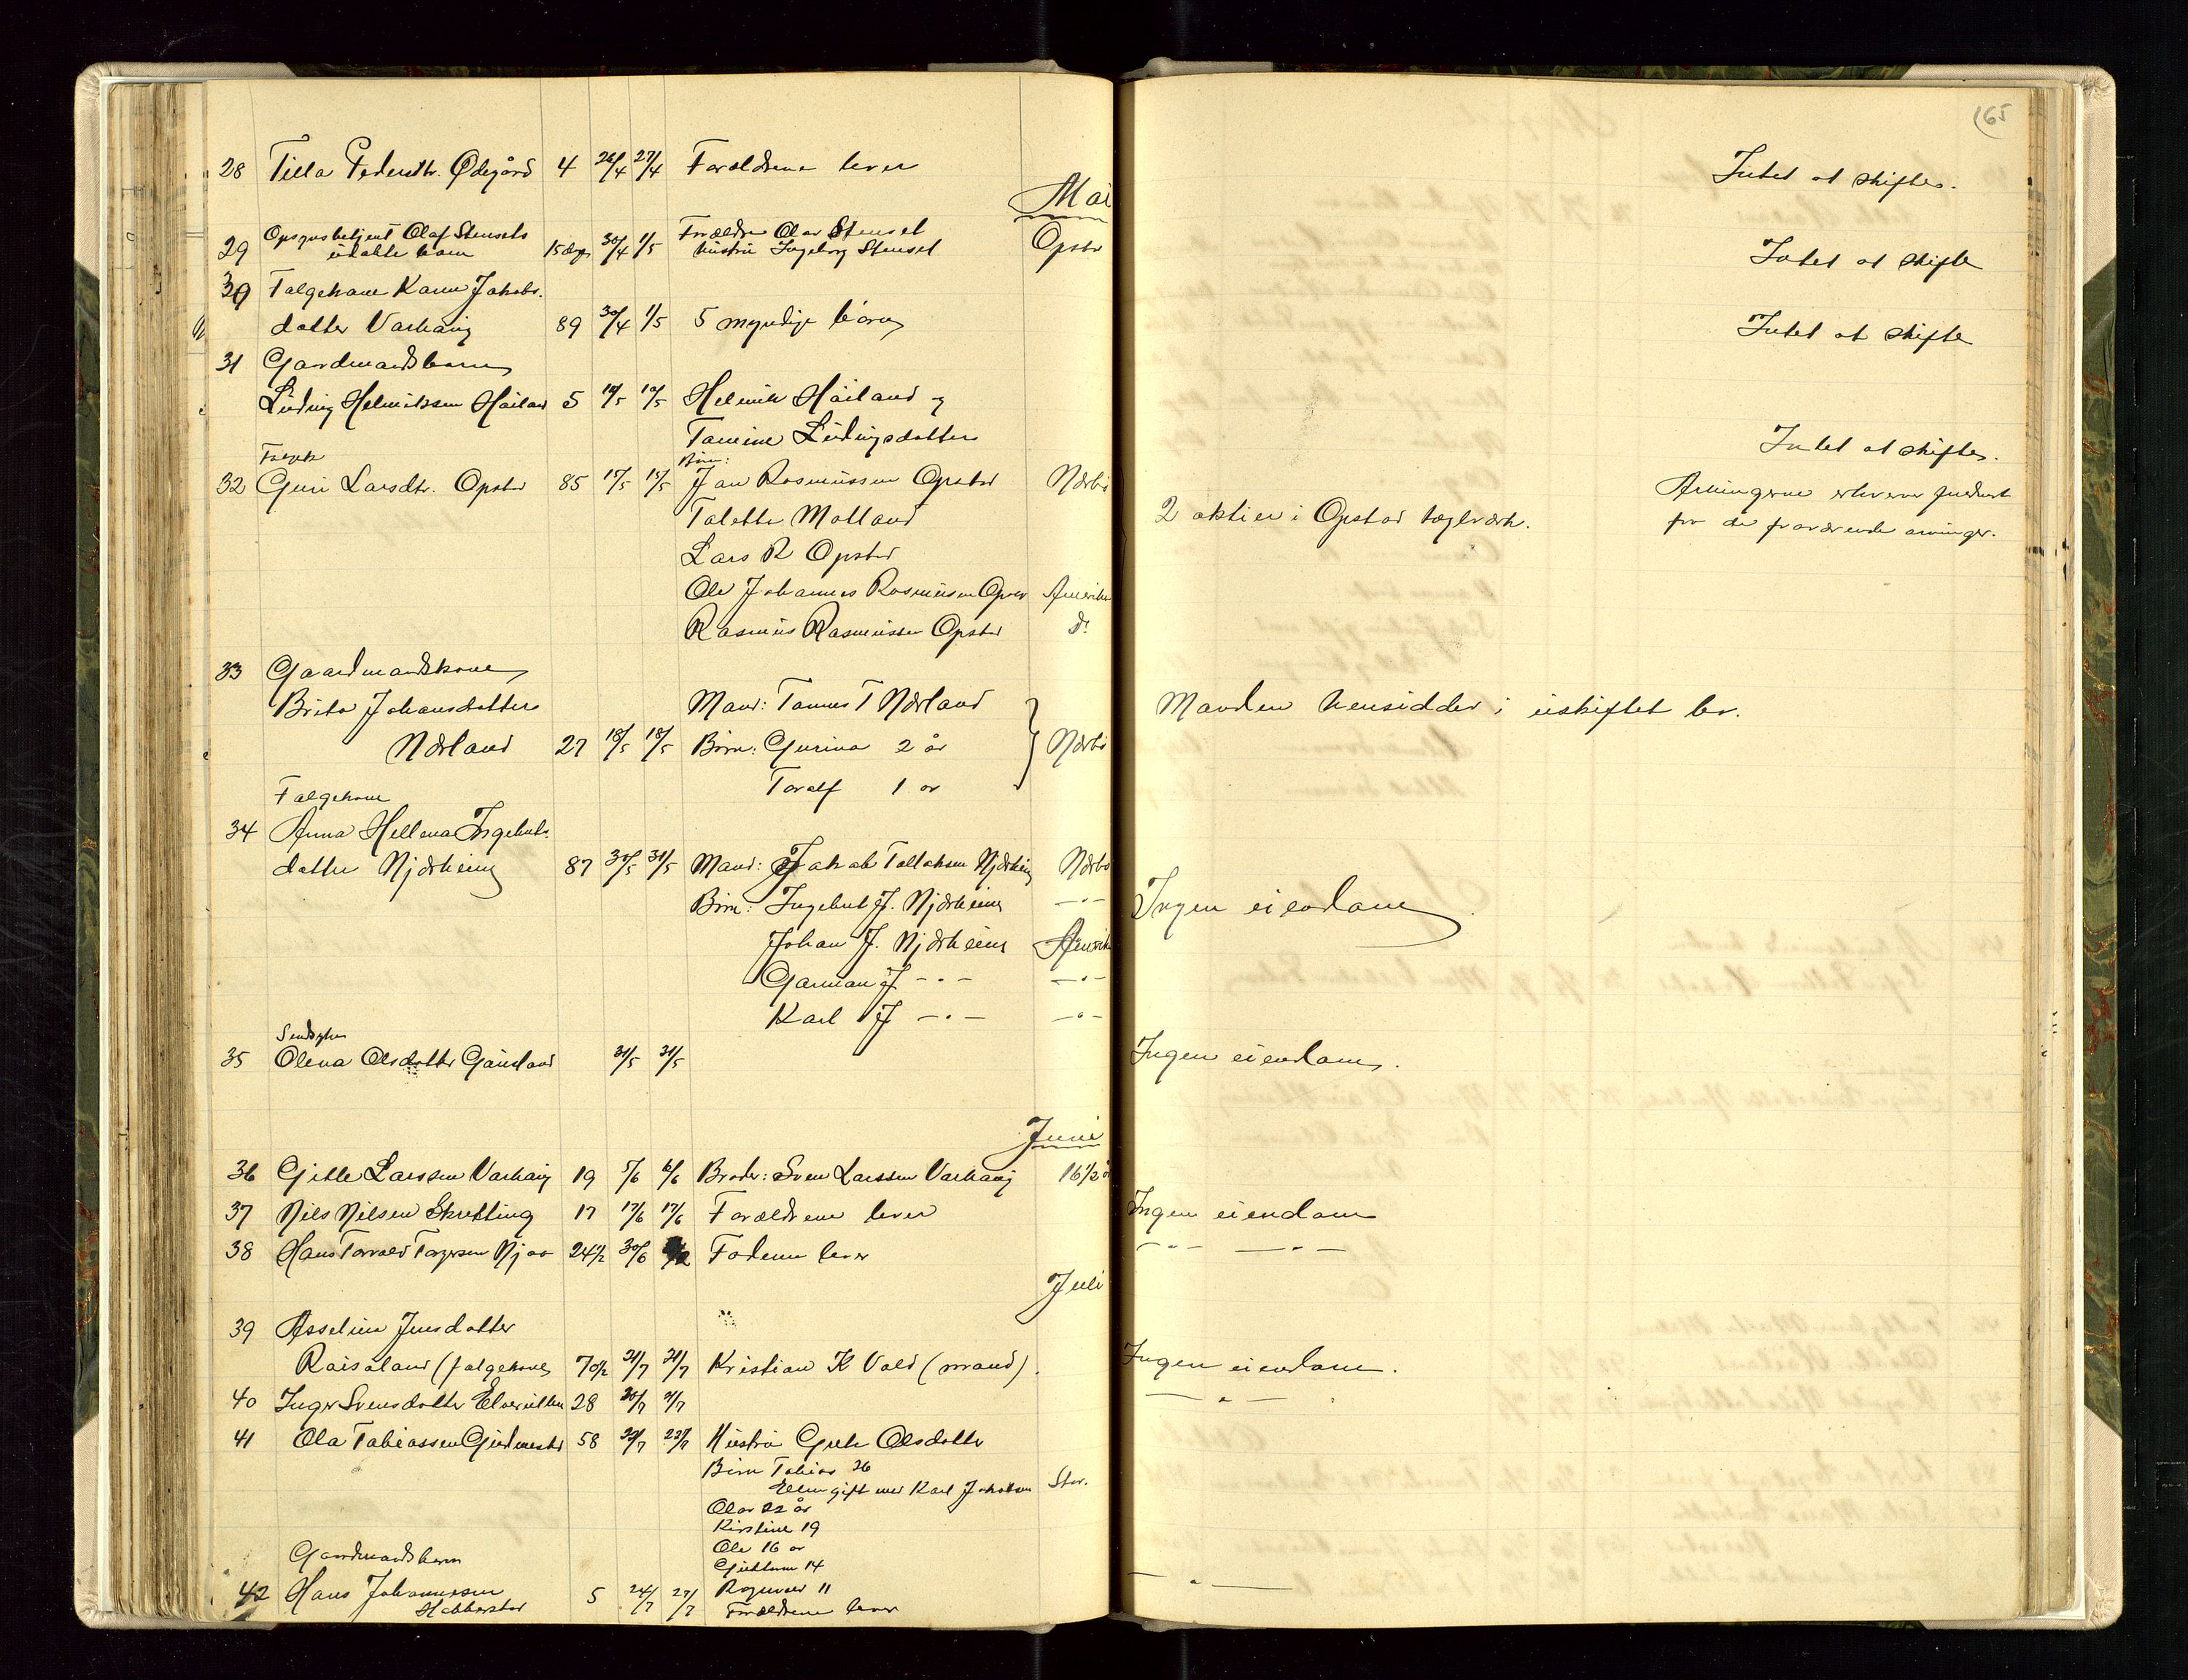 165
28 Tilla Pedersdtr. Ødegård 4 26/4 27/4 Forældrene lever Intet at skifte.
Mai
29 Opsynsbetjent Olaf Stensets udøbte barn 15 dage 30/4 1/5 Forældre Olav Stenset Hustru Ingeborg Stenset Opstr Intet at skifte
30 Folgekone Karen Jakobs-
datter Varhaug 89 30/4 1/5 5 myndige børn Intet at skifte
31 Gardmandsbarn
Ludvig Helmiksen Håiland 5 10/5 10/5 Helmik Håiland og
Tomine Ludvigsdatter Intet at skifte.
Folgek Børn:
32 Guri Larsdtr. Opstad 85 15/5 15/5 Jan Rasmussen Opstad Nærbø
Tolette Motland 2 aktier i Opstad teglværk. Arvingerne
for de fraværende arvinger.
Lars R Opstad
Ole Johannes Rasmussen Opstad Amerika
Rasmus Rasmussen Opstad Do
33 Gaardmandskone
Brita Johansdatter Mand: Tønnes T Nærland Manden hensidder i uskiftet bo.
Nærland 27 18/5 18/5 Børn: Gurina 2 år Nærbø
Toralf 1 år
Folgekone
34 Anna Hellena Ingebrets-
datter Njærheim 87 31/5 31/5 Mand: Jakob Tollaksen Njærheim Nærbø
Børn: Ingebret J. Njærheim —"— Ingen eiendom
Johan J. Njærheim Amerika
Garman J —"— —"—
Karl J —"— —"—
35 Olena Olsdatter Gausland 31/5 31/5 Ingen eiendom.
Juni
36 Gitle Larssen Varhaug 19 5/6 6/6 Broder: Sven Larssen Varhaug 16 1/2 å
37 Nils Nilsen Skretting 17 17/6 17/6 Forældrene lever Ingen eiendom
38 Hans Torvald Torgersen Njaa 24 1/2 30/6 Faderen lever —"— —"—
Juli
39 Asseline Jensdatter
Raisaland (folgekone) 70 1/2 21/7 21/7 Kristian K Vold (mand). Ingen eiendom.
40 Inger Svensdatter 28 20/7 21/7 —"—
41 Ola Tobiassen 58 22/7 23/7 Hustru Grete Olsdatter
Børn Tobias 26
Ellen gift med Karl Jakobsen Stav.
Olav 22 år
Kirstine 19
Ole 16 år
Gardmandsbarn
14
42 Hans Johannesen 5 24/7 27/7 Rognvald 11 —"—
Habberstad Forældrene lever